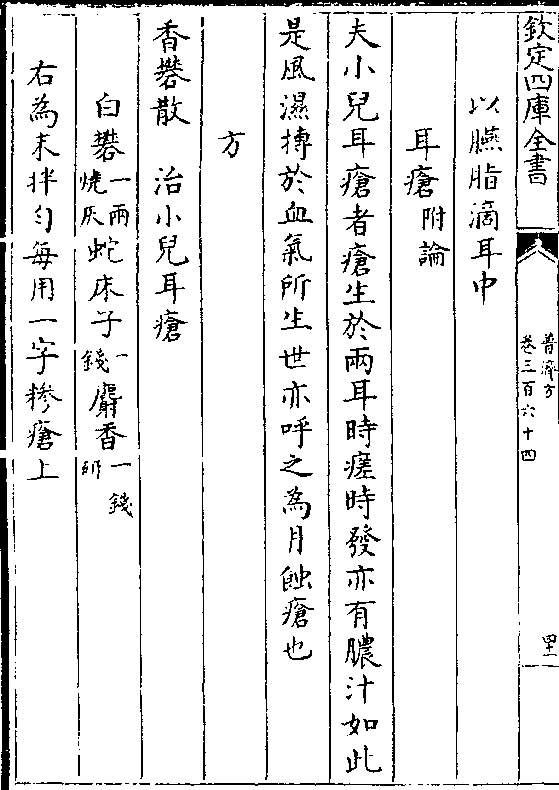 欽定四庫全書
普濟方
卷三百六十四
四十二
以臙脂滴耳中
耳瘡附論
夫小兒耳瘡者瘡生於兩耳時瘥時發亦有膿汁如此
是風濕摶於血氣所生世亦呼之為月蝕瘡也
方
香礬散 治小兒耳瘡
白礬一兩燒灰蛇床子一錢麝香一錢研
右為末拌勻每用一字糝瘡上